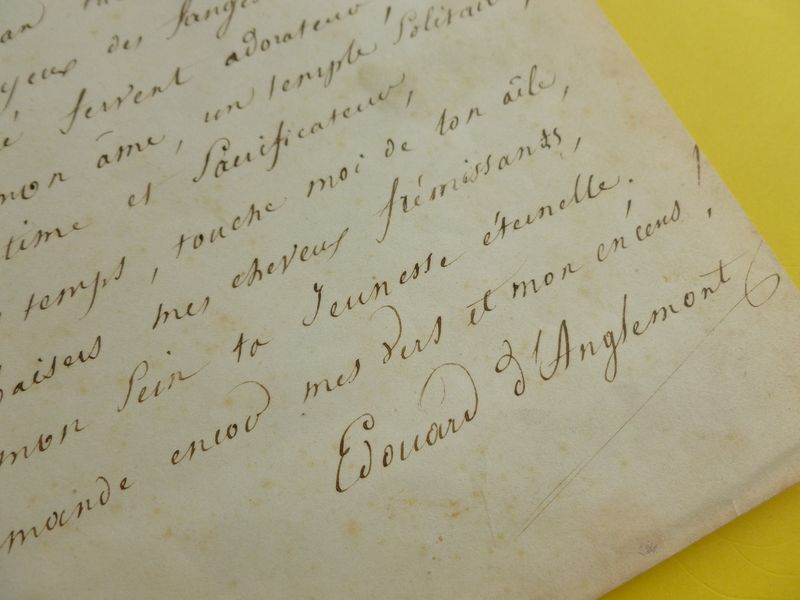 yeux des
fervent adorateur,
mon âme, un temple Solitaire,
time et Sacrificateur,
temps, touche moi de ton aîle,
baisers mes cheveux frémissants,
mon Sein ta Jeunesse éternelle.
mande encor mes vers et mon encens !
Edouard d'Anglemont